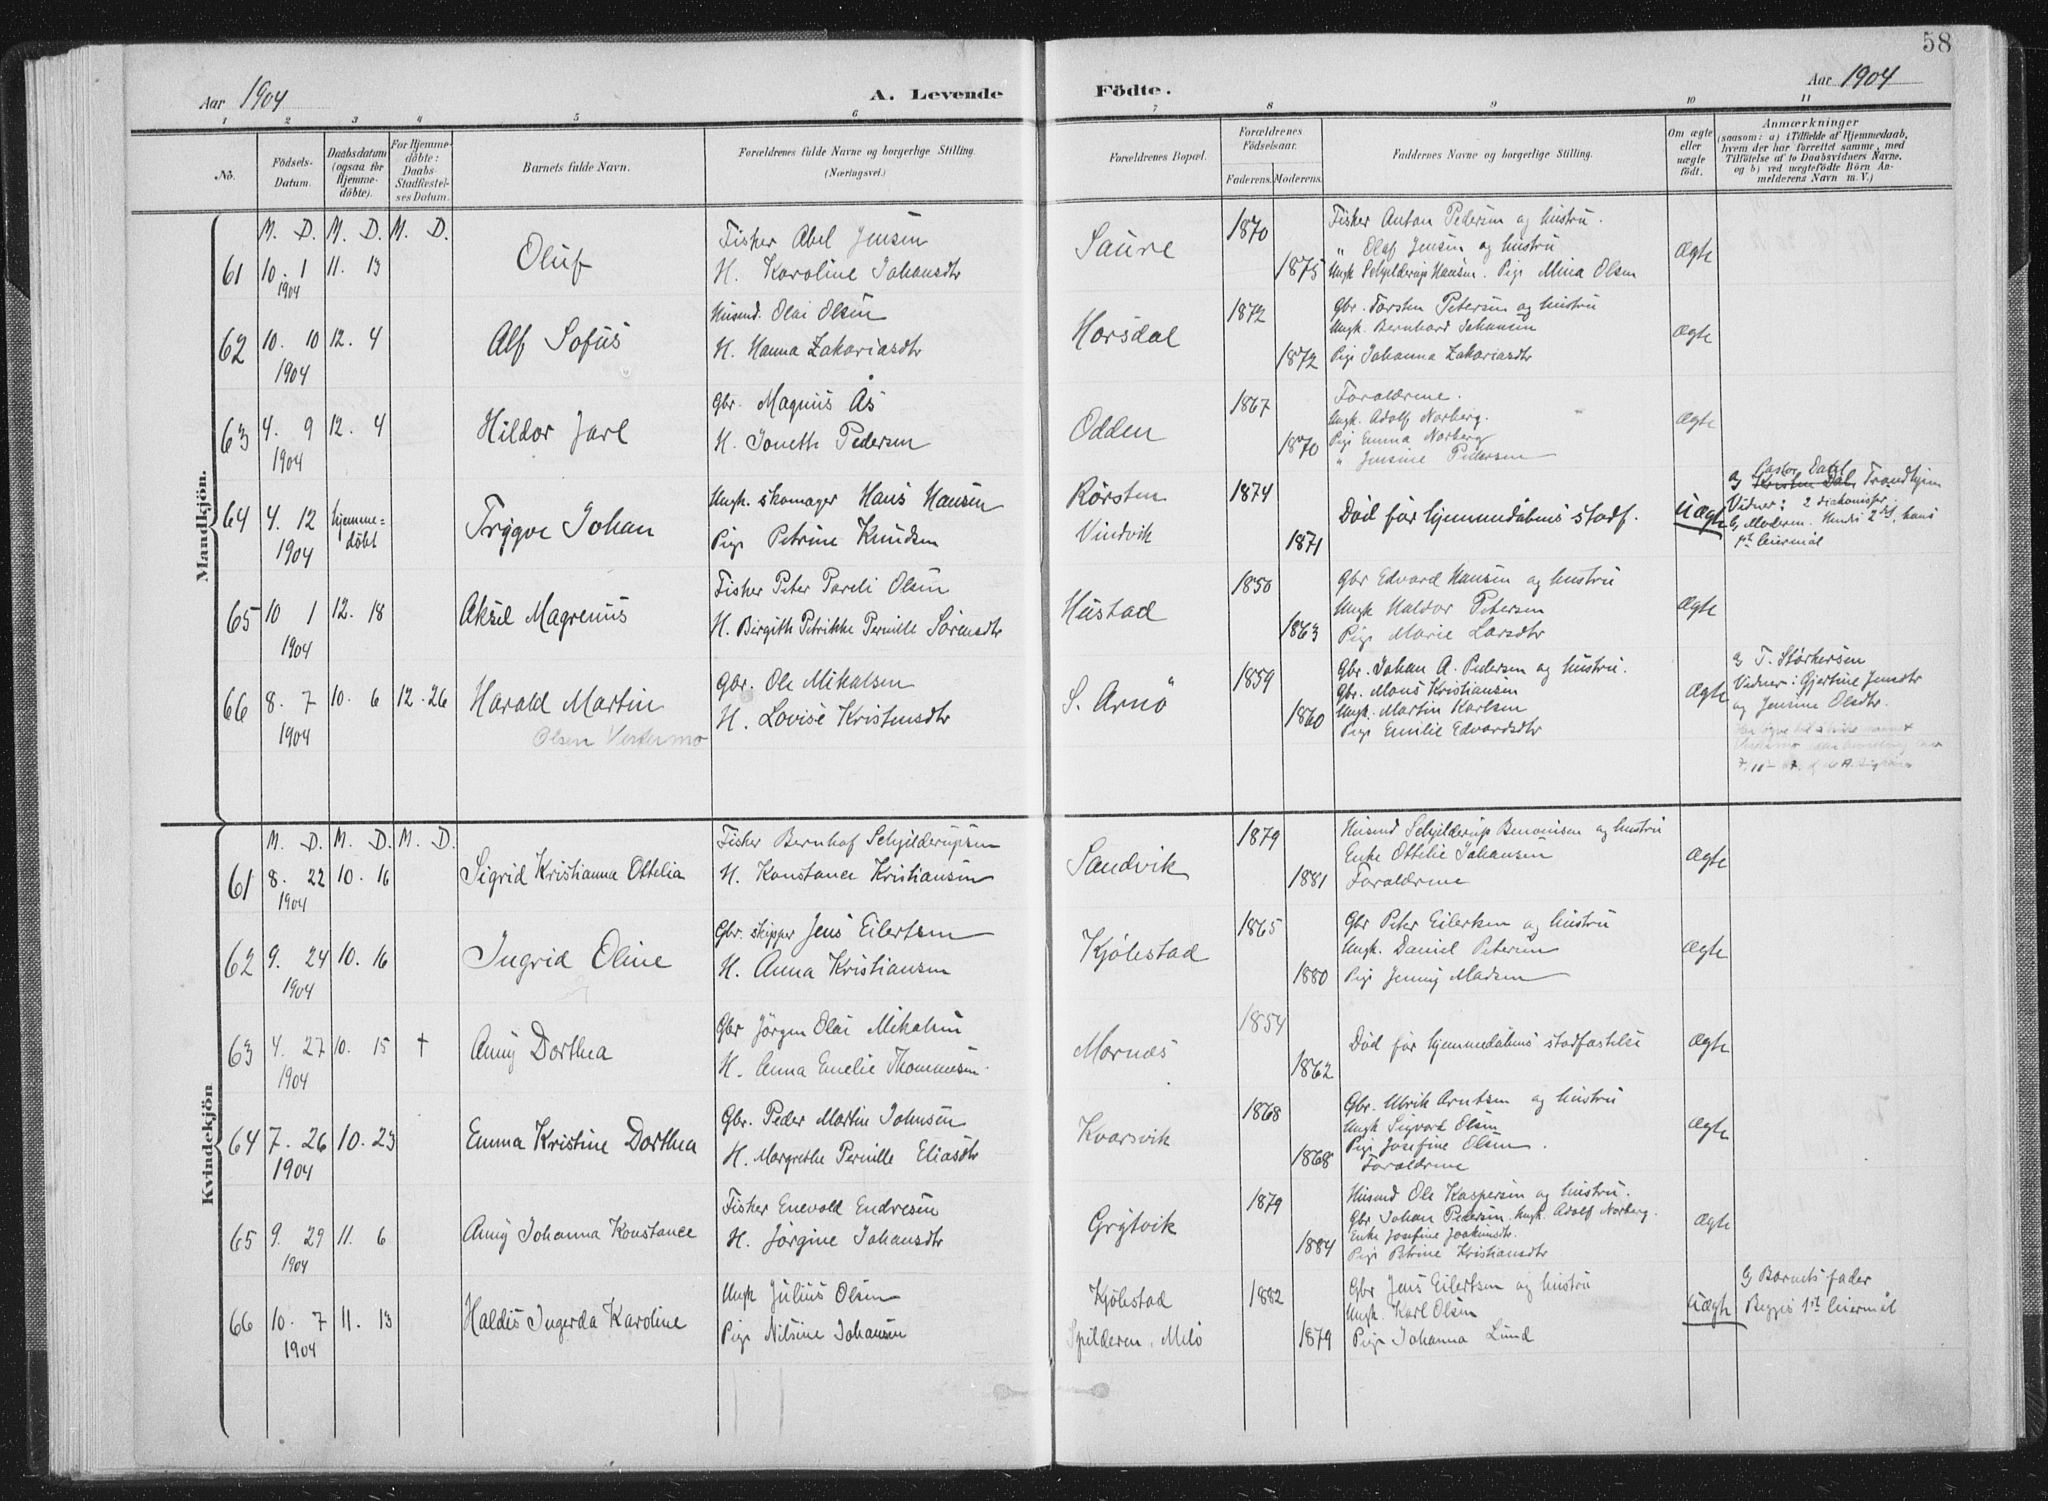 58
Aar 1904
A. Levende
Födte.
Aar 1904
1 2 3 4 5 6 7 8 9 10 11
No.
Födsels-
Datum.
Daabsdatum
(ogsaa for
Hjemme-
döbte).
For Hjemme-
döbte:
Daabs-
Stadfæstel-
ses Datum.
Barnets fulde Navn.
Forældrenes fulde Navne og borgerlige Stilling.
(Næringsvei.)
Forældrenes Bopæl.
Forældrenes
Födselsaar.
Faderens.
Moderens.
Faddernes Navne og borgerlige Stilling.
Om ægte
eller
uægte
födt.
Anmærkninger
(saasom: a) i Tilfælde af Hjemmedaab,
hvem der har forrettet samme, med
Tilföielse af to Daabsvidners Navne,
og b) ved uægtefödte Börn An-
melderens Navn m. V.)
Mandkjön.
M. D. M. D. M. D.
61 10. 1 11. 13
1904
Oluf
Fisker Abel Jensen
H. Karoline Johansdtr
Saure
1870
1875
Fisker Anton Pedersen og hustru.
" Olaf Jensen og hustru
Ungk Schjelderup Hansen. Pige Mina Olsen
Ægte
62 10. 10 12. 4
1904
Alf Sofus
Husmd. Olai Olsen
H. Hanna Zakariasdtr
Horsdal
1872
1872
Gbr. Torsten Petersen og hustru
Ungk. Bernhard Johansen
Pige Johanna Zakariasdtr
Ægte
63 4. 9 12. 4
1904
Hildor Jarl
Gbr. Magnus Ås
H. Jonette Pedersen
Odden
1867
1870
Forældrene.
Ungk. Adolf Norberg.
Pige Emma Norberg
" Jensine Pedersen
Ægte
64 4. 12 hjemme=
1904 döbt
Trygve Johan
Ungk. skomager Hans Hansen
Pige Petrine Knudsen
Rörsten
Vindvik
1874
1871
Död för hjemmedåbens stadf.
Uægte
Pastor Dahl
a) Kristen Dahl Trondhjem
Vidner: 2 diakonisser
b) Moderen. Hendes 2det, hans
1st leiermål
65 10 1 12. 18
1904
Aksel Magrenus
Fisker Peter Pareli Olsen
H. Birgith Petrikke Pernille Sörensdtr
Hustad
1850
1863
Gbr Edvard Hansen og hustru
Ungk Haldor Petersen
Pige Marie Larsdtr
Ægte
66 8. 7 10. 6 12. 26
1904
Harald Martin
Olsen Vestermo
Gbr. Ole Mikalsen
H. Lovise Kristensdtr
S. Arnö
1859
1860
Gbr. Johan A. Pedersen og hustru.
Gbr. Mons Kristiansen
Ungk. Martin Karlsen
Pige Emilie Edvardsdtr
Ægte
a) T. Störkersen
Vidner: Gjertine Jensdtr
og Jensine Olsdtr.
Kvindekjön
M. D. M. D. M. D.
61 8. 22 10. 16
1904
Sigrid Kristianna Ottelia
Fisker Bernhof Schjelderupsen
H. Konstance Kristiansen
Sandvik
1879
1881
Husmd Schjelderup Benonisen og hustru
Enke Ottelie Johansen
Forældrene
Ægte
62 9. 24 10. 16
1904
Ingrid Oline
Gbr. skipper Jens Eilertsen
H. Anna Kristiansen
Kjölestad
1865
1880
Gbr Peter Eilertsen og hustru
Ungk. Daniel Petersen
Pige Jenny Madsen
Ægte
63 4. 27 10. 15 †
1904
Anny Dorthea
Gbr Jörgen Olai Mikalsen
H. Anna Emelie Thommesen
Mornes
1854
1862
Död för hjemmedåbens stadfæstelse
Ægte
64 7. 26 10. 23
1904
Emma Kristine Dorthea
Gbr. Peder Martin Johnsen
H. Margrethe Pernille Eliasdtr
Kvarsvik
1868
1868
Gbr. Ulrik Arntsen og hustru
Ungk Sigvart Olsen
Pige Josefine Olsen.
Forældrene
Ægte
65 9. 29 11. 6
1904
Anny Johanna Konstance
Fisker Enevold Endresen
H. Jörgine Johansdtr
Grytvik
1879
1884
Husmd Ole Kaspersen og hustru.
Gbr Johan Pedersen. Ungk. Adolf Norberg.
Enke Josefine Joakimsdtr.
Pige Petrine Kristiansdtr
Ægte
66 10. 7 11. 13
1904
Haldis Ingerda Karoline
Ungk Julius Olsen
Pige Nilsine Johansen
Kjölestad
Spilderen, Melö
1882
1879
Gbr Jens Eilertsen og hustru
Ungk. Karl Olsen
Pige Johanna Lund
Uægte
b) Barnets fader
Begges 1st leiermål